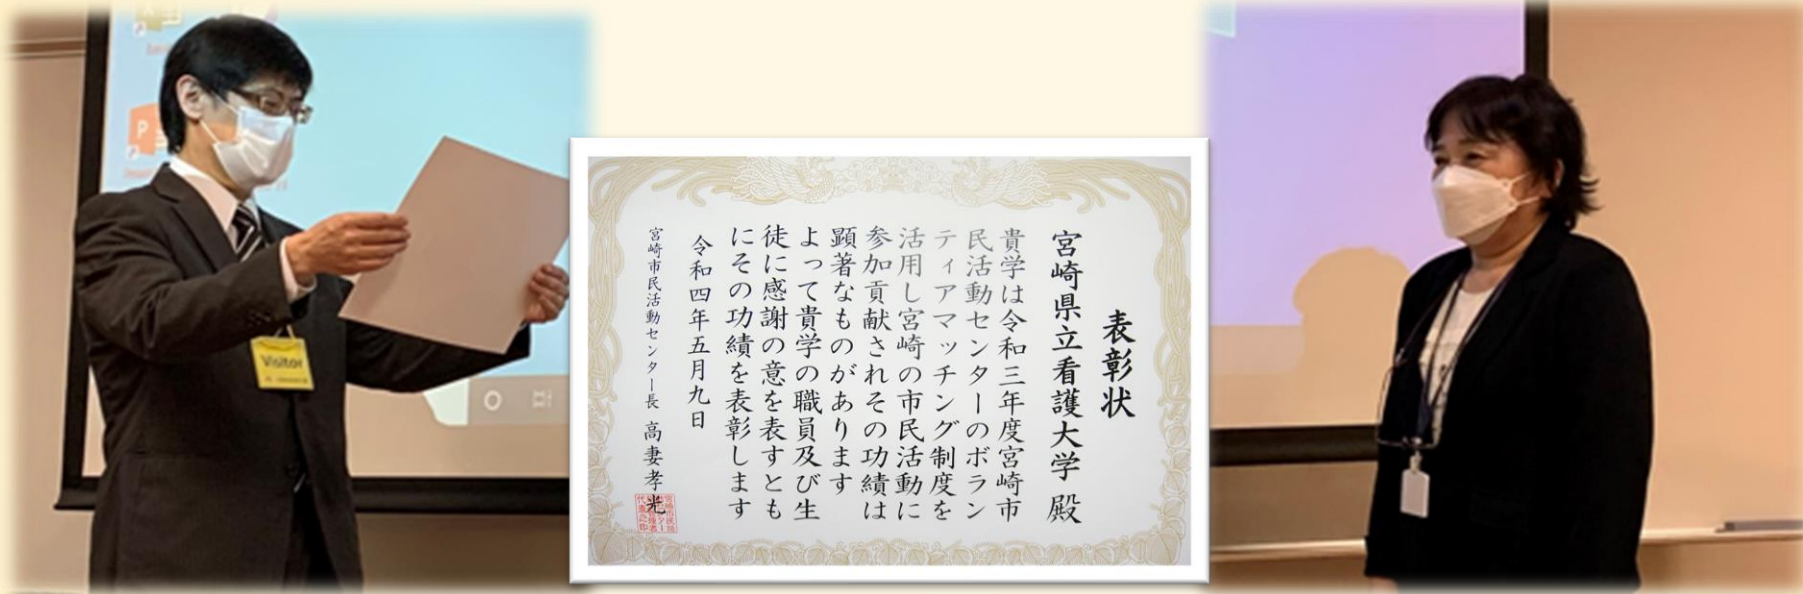 表彰状
宮崎県立看護大学 殿
貴学は令和三年度宮崎市
民活動センターのボラン
ティアマッチング制度を
活用し宮崎の市民活動に
参加貢献されその功績は
顕著なものがあります
よって貴学の職員及び生
徒に感謝の意を表すとも
にその功績を表彰します
令和四年五月九日
宮崎市民活動センター長 高妻孝光
Visitor